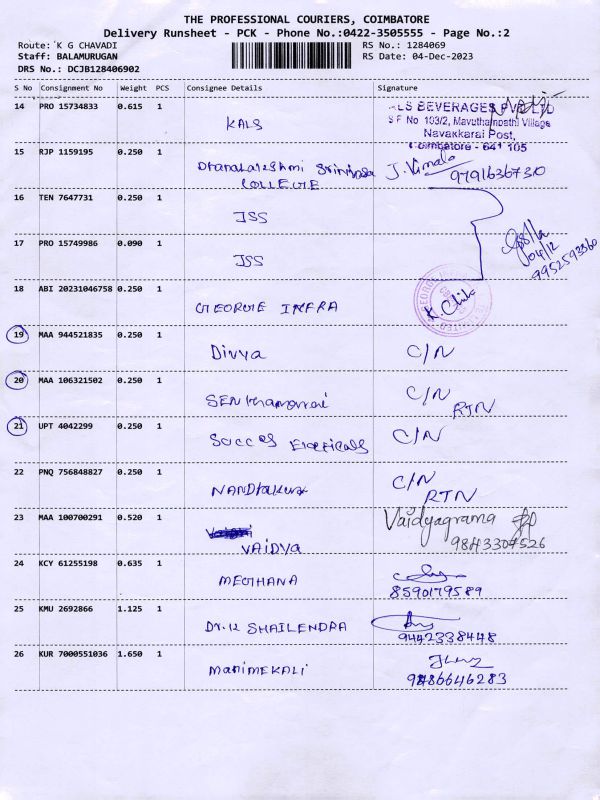 THE PROFESSIONAL COURIERS, COIMBATORE
Delivery Runsheet - PCK - Phone No.:0422-3505555 - Page No.:2
Route: K G CHAVADI RS No.: 1284069
Staff: BALAMURUGAN RS Date: 04-Dec-2023
DRS No.: DCJB128406902
S No Consignment No Weight PCS Consignee Details Signature
14 PRO 15734833 0.615 1 KALS
BEVERAGES
S F No 103/2, Mavuthampathi Village
Navakkarai Post,
Coimbatore - 641 105
15 RJP 1159195 0.250 1 Dhanalakshmi Srinivasa J. Vimala
COLLEGE 9791636730
16 TEN 7647731 0.250 1 JSS
17 PRO 15749986 0.090 1 JSS
04/12
9952593360
18 ABI 20231046758 0.250 1 GEORGE INFRA
19 MAA 944521835 0.250 1 Divya C/N
20 MAA 106321502 0.250 1 SENthamarai C/N
RTN
21 UPT 4042299 0.250 1 Succes Electicals C/N
22 PNQ 756848827 0.250 1 NANDhakumar C/N
RTN
23 MAA 100700291 0.520 1 VAIDYA Vaidyagrama
9843304526
24 KCY 61255198 0.635 1 MEGHANA
8590179589
25 KMU 2692866 1.125 1 Dr.K SHAILENDRA
9442338448
26 KUR 7000551036 1.650 1 MANIMEKALi
9486646283